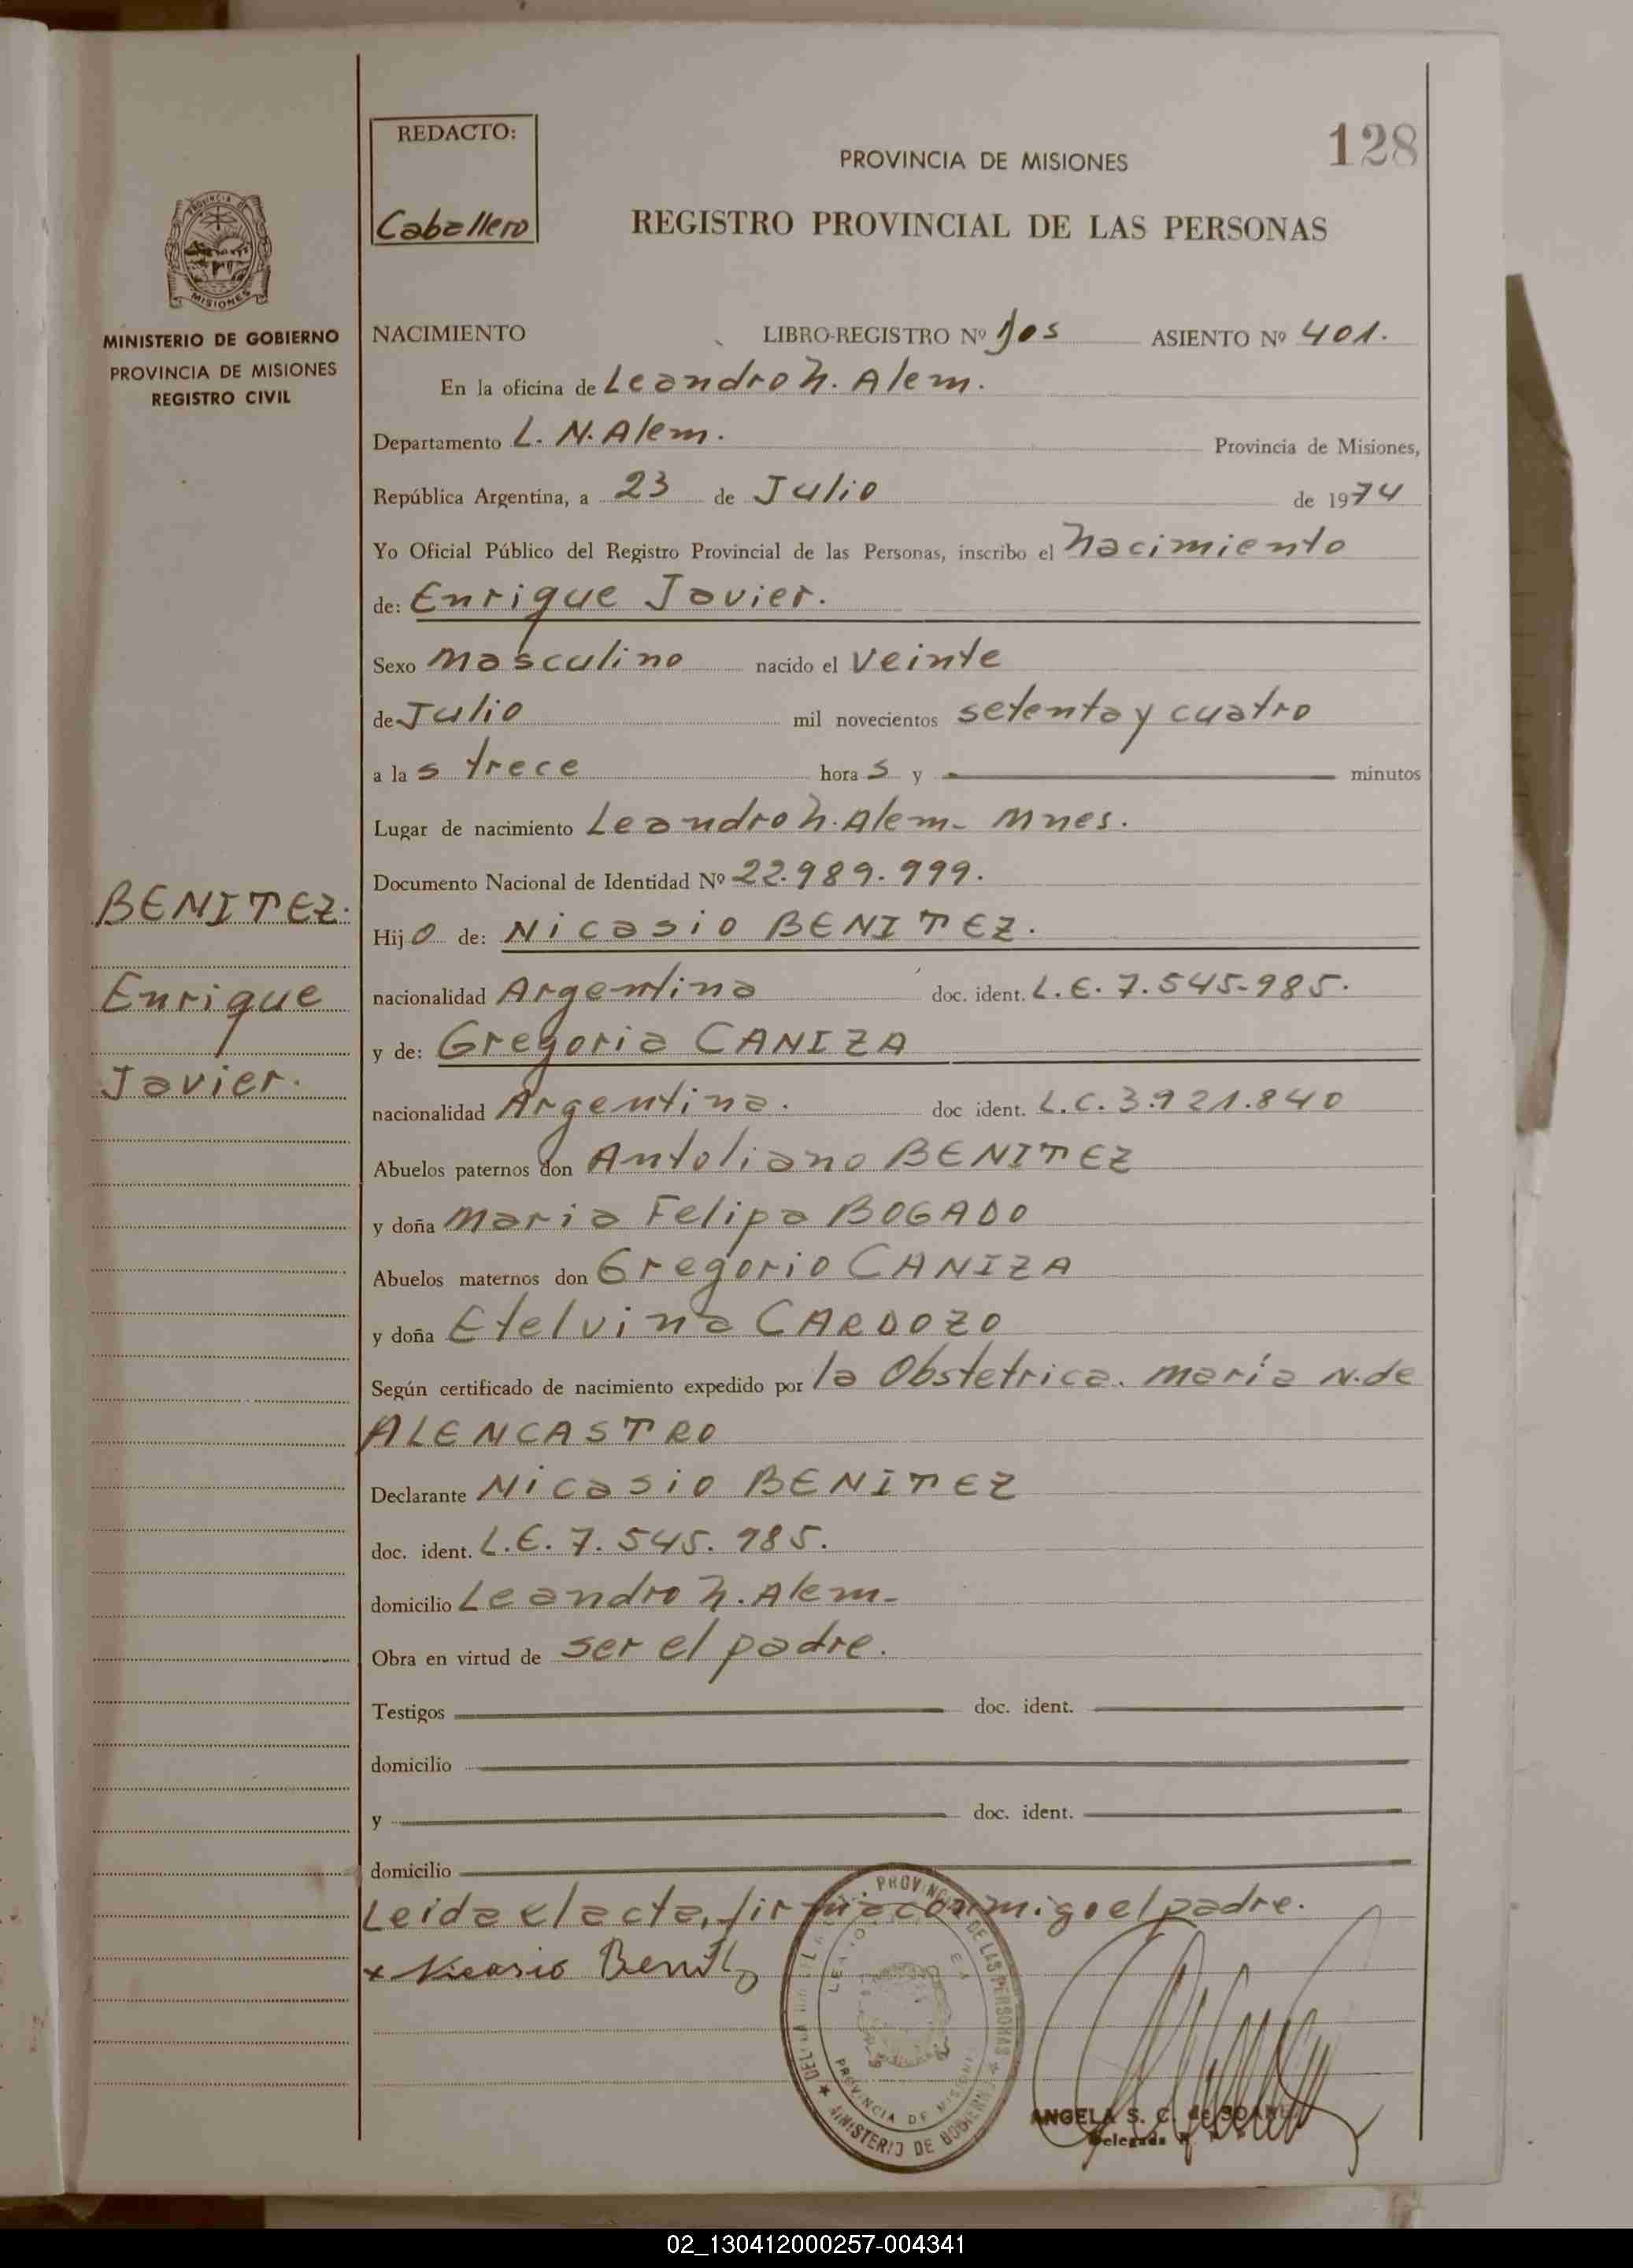 128
REDACTO:
Caballero
PROVINCIA DE MISIONES
REGISTRO PROVINCIAL DE LAS PERSONAS
PROVINCIA DE
MISIONES
MINISTERIO DE GOBIERNO
PROVINCIA DE MISIONES
REGISTRO CIVIL
NACIMIENTO LIBRO-REGISTRO Nº Dos ASIENTO Nº 401.
En la oficina de Leandro N. Alem.
Departamento L. N. Alem. Provincia de Misiones,
República Argentina, a 23 de Julio de 1974
Yo Oficial Público del Registro Provincial de las Personas, inscribo el Nacimiento
de: Enrique Javier.
Sexo Masculino nacido el veinte
de Julio mil novecientos setenta y cuatro
a las trece horas y minutos
Lugar de nacimiento Leandro N. Alem - Mnes.
Documento Nacional de Identidad Nº 22.989.999.
BENITEZ.
Enrique
Javier.
Hijo de: Nicasio BENITEZ.
nacionalidad Argentina doc. ident. L.E. 7.545-985.
y de: Gregoria CANIZA
nacionalidad Argentina. doc ident. L.C. 3.921.840
Abuelos paternos don Antoliano BENITEZ
y doña Maria Felipa BOGADO
Abuelos maternos don Gregorio CANIZA
y doña Etelvina CARDOZO
Según certificado de nacimiento expedido por la Obstetrica. María N. de
ALENCASTRO
Declarante Nicasio BENITEZ
doc. ident. L.E. 7.545.985.
domicilio Leandro N. Alem-
Obra en virtud de ser el padre.
Testigos doc. ident.
domicilio
y doc. ident.
domicilio
Leida el acta, firma conmigo el padre.
x Nicasio Benitez
PROVINCIAL DE LAS PERSONAS
MINISTERIO DE GOBIERNO
PROVINCIA DE MISIONES
ANGELA S. C. de
Delegada
02_130412000257-004341